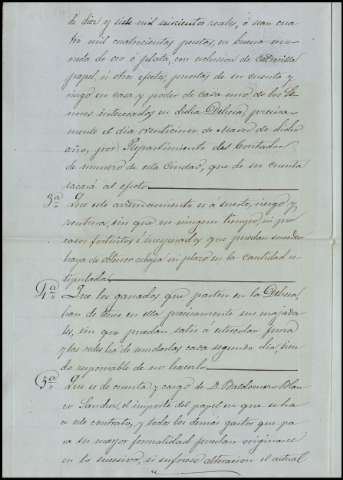 de diez y siete mil seiscientos reales, ó sean cua
tro mil cuatrocientas pesetas, en buena mo-
neda de oro ó plata, con esclusion de calderilla
papel, ú otro efecto, puestas de su cuenta y
riesgo en casa y poder de cada uno de los Se-
ñores interesados en dicha Dehesa, precisa-
mente el dia veinticinco de Marzo de dicho
año, por Repartimiento del Contador
de numero de esta Ciudad, que de su cuenta
sacará al efecto
3ª Que este arrendamiento es á suerte, riesgo y
ventura, sin que en ningun tiempo, ni por
casos fortuitos é impensados que puedan suceder
haya de obtener rebaja ni plazo en la cantidad es-
tipulada
4ª Que los ganados que pasten en la Dehesa,
han de tener en ella precisamente sus majada
les, sin que puedan salir a estercolar fuera
y los redes ha de mudarlas cada segundo dia, sien
do responsable de no hacerlo
5ª Que es de cuenta y cargo de D. Baldomero Blan
co Sanchez, el importe del papel en que se ha
ce este contrato, y todos los demas gastos que pa
ra su mayor formalidad puedan originarse
en lo sucesivo, si sufriese alteracion el actual